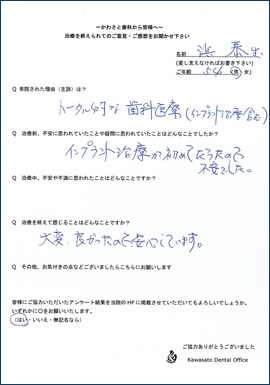 ～かわさと歯科から皆様へ～
治療を終えられてのご意見・ご感想をお聞かせ下さい
名前 浜 泰生
(差し支えなければお書き下さい)
ご年齢 54 (男)女)
Q 来院された理由(主訴)は?
トータル的な歯科医療(インプラント治療含む)
Q 治療前、不安に思われていたことや疑問に思われていたことはどんなことでしたか?
インプラント治療が初めてだったので
不安でした。
Q 治療中、不安や不満に思われたことはどんなことですか?
Q 治療を終えて感じることはどんなことですか?
大変、良かったので安心しています。
Q その他、お気付きの点などございましたらこちらにお願いします
皆様にご協力いただいたアンケート結果を当院のHPに掲載させていただいてもよろしいでしょうか。
いずれかに○をお願いいたします。
(はい・いいえ・無記名なら)
ご協力ありがとうございました
Kawasato Dental Office